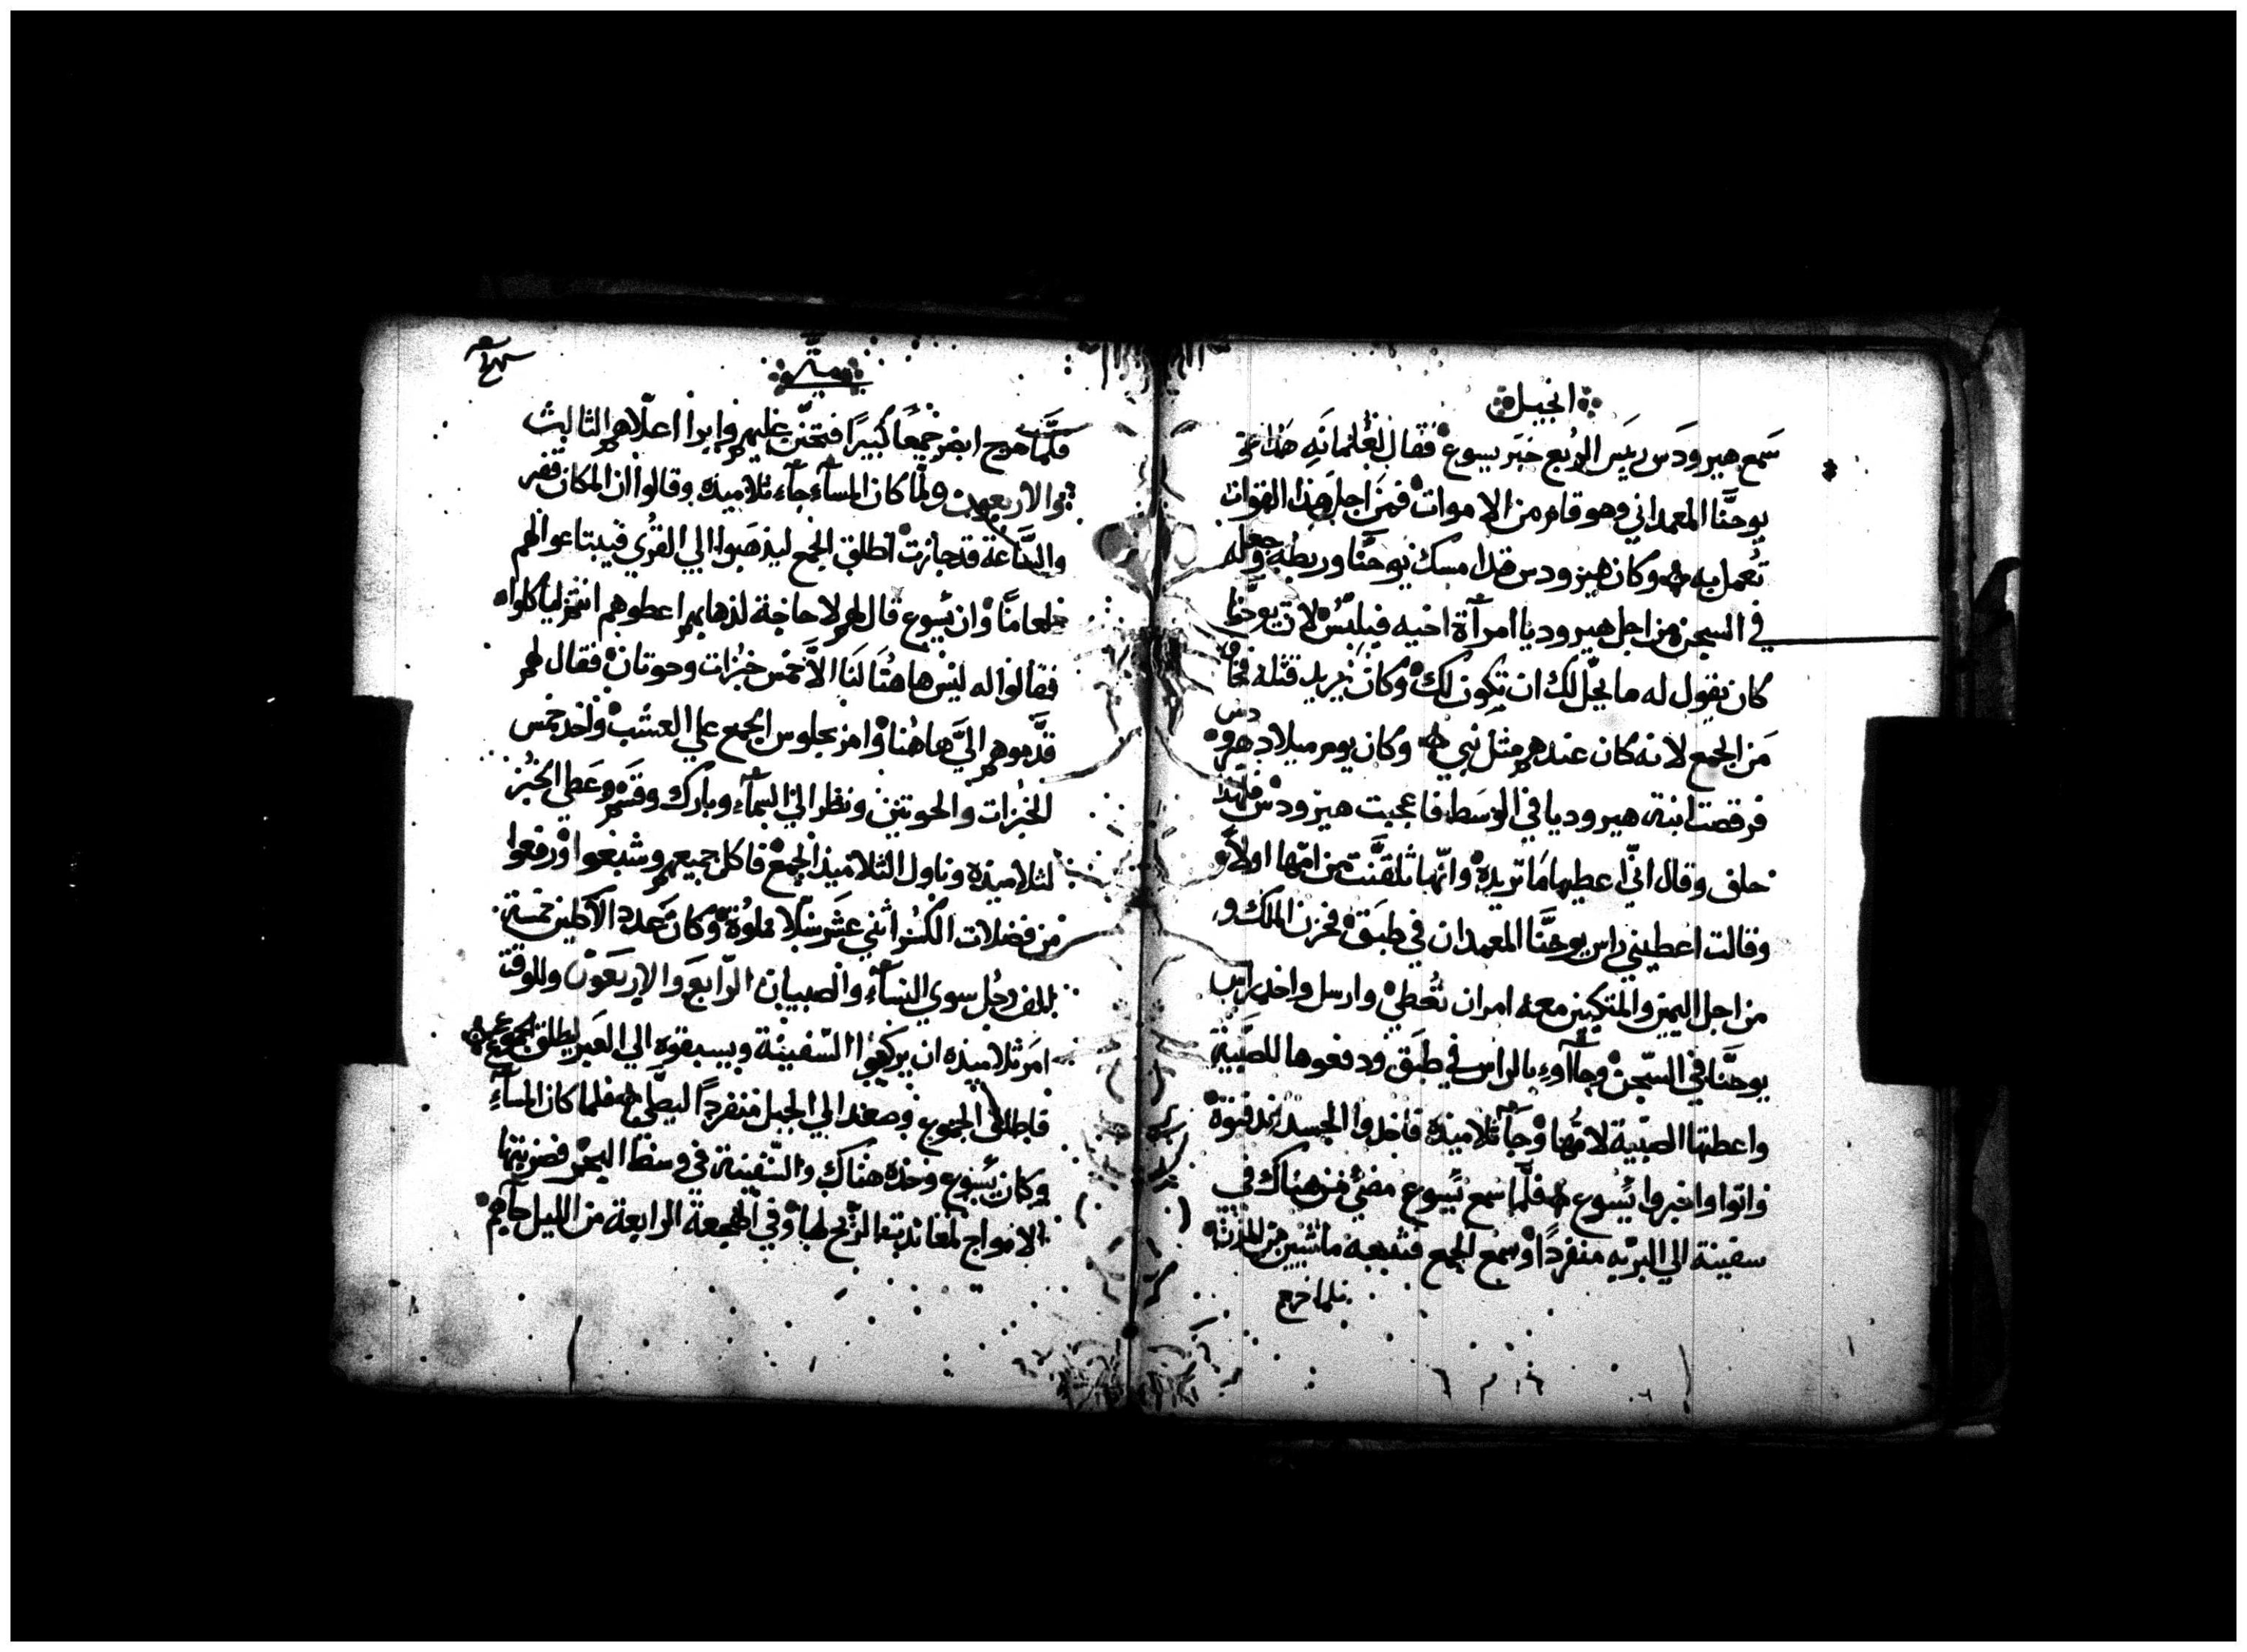 انجيل
سمع هيرودس ريس الربع خبر يسوع فقال لغلمانه هذا هو
يوحنا المعمداني وهو قام من الاموات فمن اجل هذا القوات
تعمل به وكان هيرودس قدا مسك يوحنا وربطه وجعله
في السجن من اجل هيروديا امرآة اخيه فيلبس لان يوحنا
كان يقول له ما يحل لك ان تكون لك وكان يريد قتله فخاف
من الجمع لانه كان عندهم مثل نبي وكان يوم ميلاد هيرودس
فرقصت ابنة هيروديا في الوسط فاعجبت هيرودس فلهذا
حلف وقال اني اعطيها ما تريده وانها تلقنت من امها اولا
وقالت اعطيني راس يوحنا المعمدان في طبق فحزن الملك و
من اجل اليمين والمتكيين معه امران تعطي وارسل واخد راس
يوحنا في السجن وجآاوء بالراس في طبق ودفعوها للصبية
واعطتها الصبية لامها وجآء تلاميذه فاخدوا الجسد دفنوه
واتوا واخبروا يسوع فلما سمع يسوع مضي من هناك في
سفينة الي البريه منفردا وسمع الجمع فتبعه ماشيين من المدن
فلما خرج
متي
فلما خرج ابصر جمعا كبيرا فتحنن عليهم وابرا اعلاهم الثالث
والاربعون ولما كان المسآء جآء تلاميذه وقالوا ان المكان قفر
والساعة قد جازت اطلق الجمع ليذهبوا الي القري فيبتاعوا لهم
طعاما وان يسوع قال لهم لا حاجة لذهابهم اعطوهم انتم لياكلوا
فقالوا له ليس هاهنا لنا الا خمس خبزات وحوتان فقال لهم
قدموهم الي هاهنا وامر بجلوس الجمع علي العشب واخد خمس
الخبزات والحوتين ونظر الي السمآء وبارك وقسم وعطي الخبز
لتلاميذه وناول التلاميذ الجمع فاكل جميعهم وشبعوا ورفعوا
من فضلات الكسر اثني عشر سلا مملوة وكان عدد الآكلين خمسة
الف رجل سوي النسآء والصبيان الرابع والاربعون وللوقت
امر تلاميذه ان يركبوا السفينة ويسبقوه الي العبر ليطلق الجموع
فاطلق الجموع وصعد الي الجبل منفردا ليصلي فلما كان المسآء
وكان يسوع وحده هناك والسفينة في وسط البحر فضربتها
الامواج لمعاندة الريح لها وفي الهجعة الرابعة من الليل جآهم